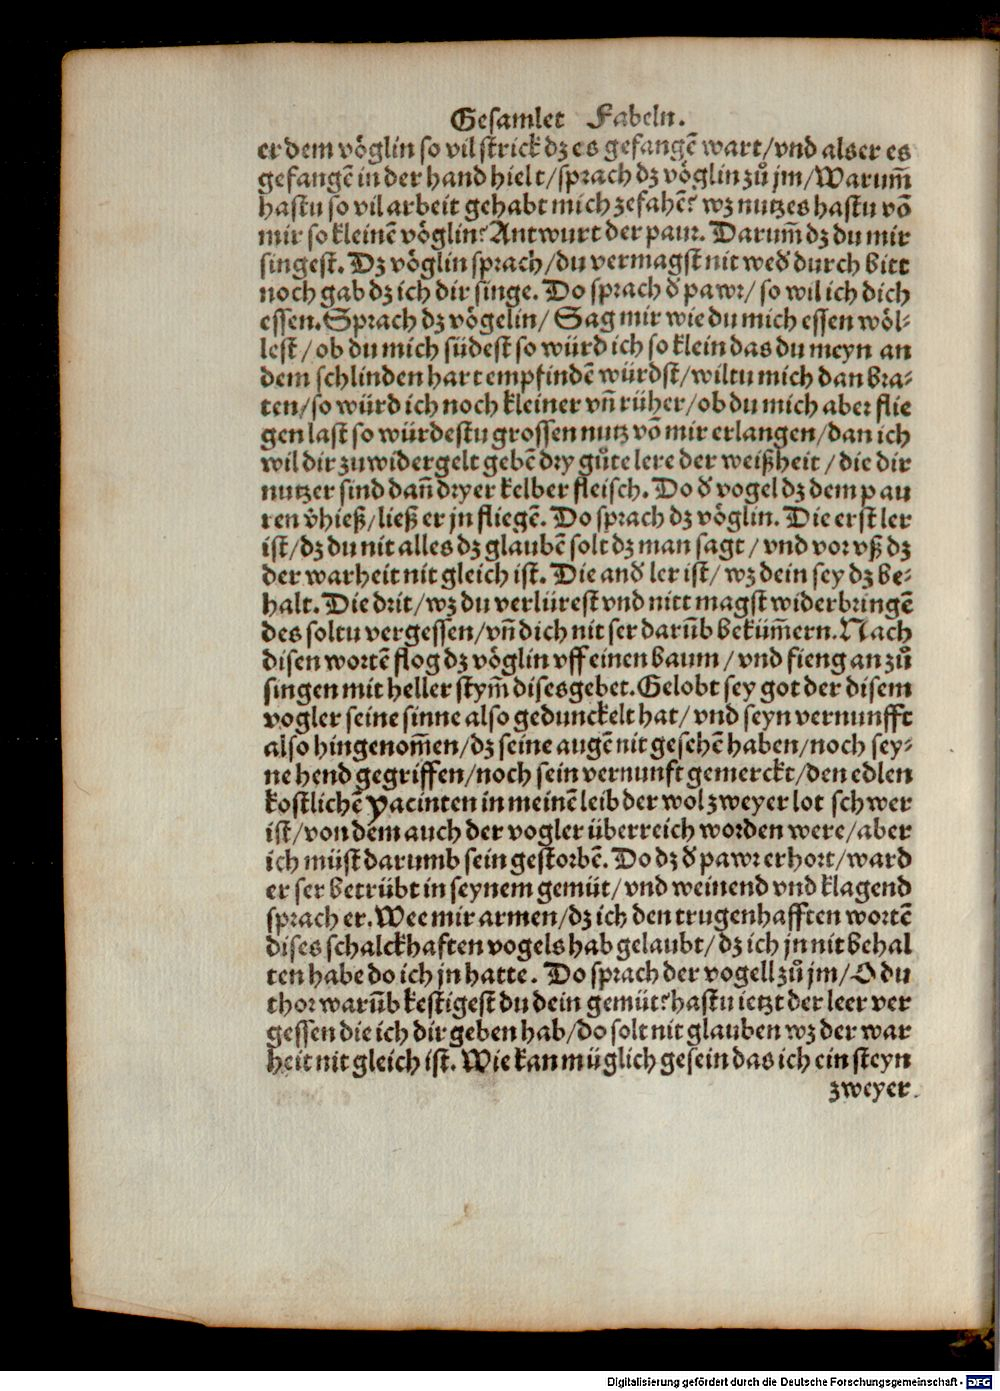 Gesamlet Fabeln.
er dem vöglin so vil strick dz es gefangē wart/vnd als er es
gefangē in der hand hielt/sprach dz vöglin zů jm/Warum̄
hastu so vil arbeit gehabt mich zefahē? wz nutzes hastu vō
mir so kleinē vöglin? Antwurt der paur. Darum̄ dz du mir
singest. Dz vöglin sprach/du vermagst nit wed̓ durch bitt
noch gab dz ich dir singe. Do sprach d̓ pawr/ so wil ich dich
essen. Sprach dz vögelin/ Sag mir wie du mich essen wöl-
lest/ ob du mich südest so würd ich so klein das du meyn an
dem schlinden hart empfindē würdst/wiltu mich dan bra-
ten/so würd ich noch kleiner vn̄ rüher/ob du mich aber flie
gen last so würdestu grossen nutz vō mir erlangen/dan ich
wil dir zu widergelt gebē dry gůte lere der weißheit/die dir
nutzer sind dan̄ dryer kelber fleisch. Do d̓ vogel dz dem pau
ren v̓hieß/ließ er jn fliegē. Do sprach dz vöglin. Die erst ler
ist/dz du nit alles dz glaubē solt dz man sagt/ vnd vor vß dz
der warheit nit gleich ist. Die and̓ ler ist/ wz dein sey dz be-
halt. Die drit/wz du verlürest vnd nitt magst widerbringē
des soltu vergessen/vn̄ dich nit ser darūb beküm̄ern. Nach
disen wortē flog dz vöglin vff einen baum/ vnd fieng an zů
singen mit heller stym̄ dises gebet. Gelobt sey got der disem
vogler seine sinne also gedunckelt hat/ vnd seyn vernunfft
also hingenom̄en/dz seine augē nit gesehē haben/noch sey-
ne hend gegriffen/noch sein vernunft gemerckt/den edlen
kostlichē yacinten in meinē leib der wol zweyer lot schwer
ist/von dem auch der vogler überreich worden were/aber
ich müst darumb sein gestorbē. Do dz d̓ pawr erhort/ward
er ser betrübt in seynem gemüt/vnd weinend vnd klagend
sprach er. Wee mir armen/dz ich den trugenhafften wortē
dises schalckhaften vogels hab gelaubt/dz ich jn nit behal
ten habe do ich jn hatte. Do sprach der vogell zů jm/O du
thor warūb kestigest du dein gemüt? hastu ietzt der leer ver
gessen die ich dir geben hab/do solt nit glauben wz der war
heit nit gleich ist. Wie kan müglich gesein das ich ein steyn
zweyer.
Digitalisierung gefördert durch die Deutsche Forschungsgemeinschaft - DFG